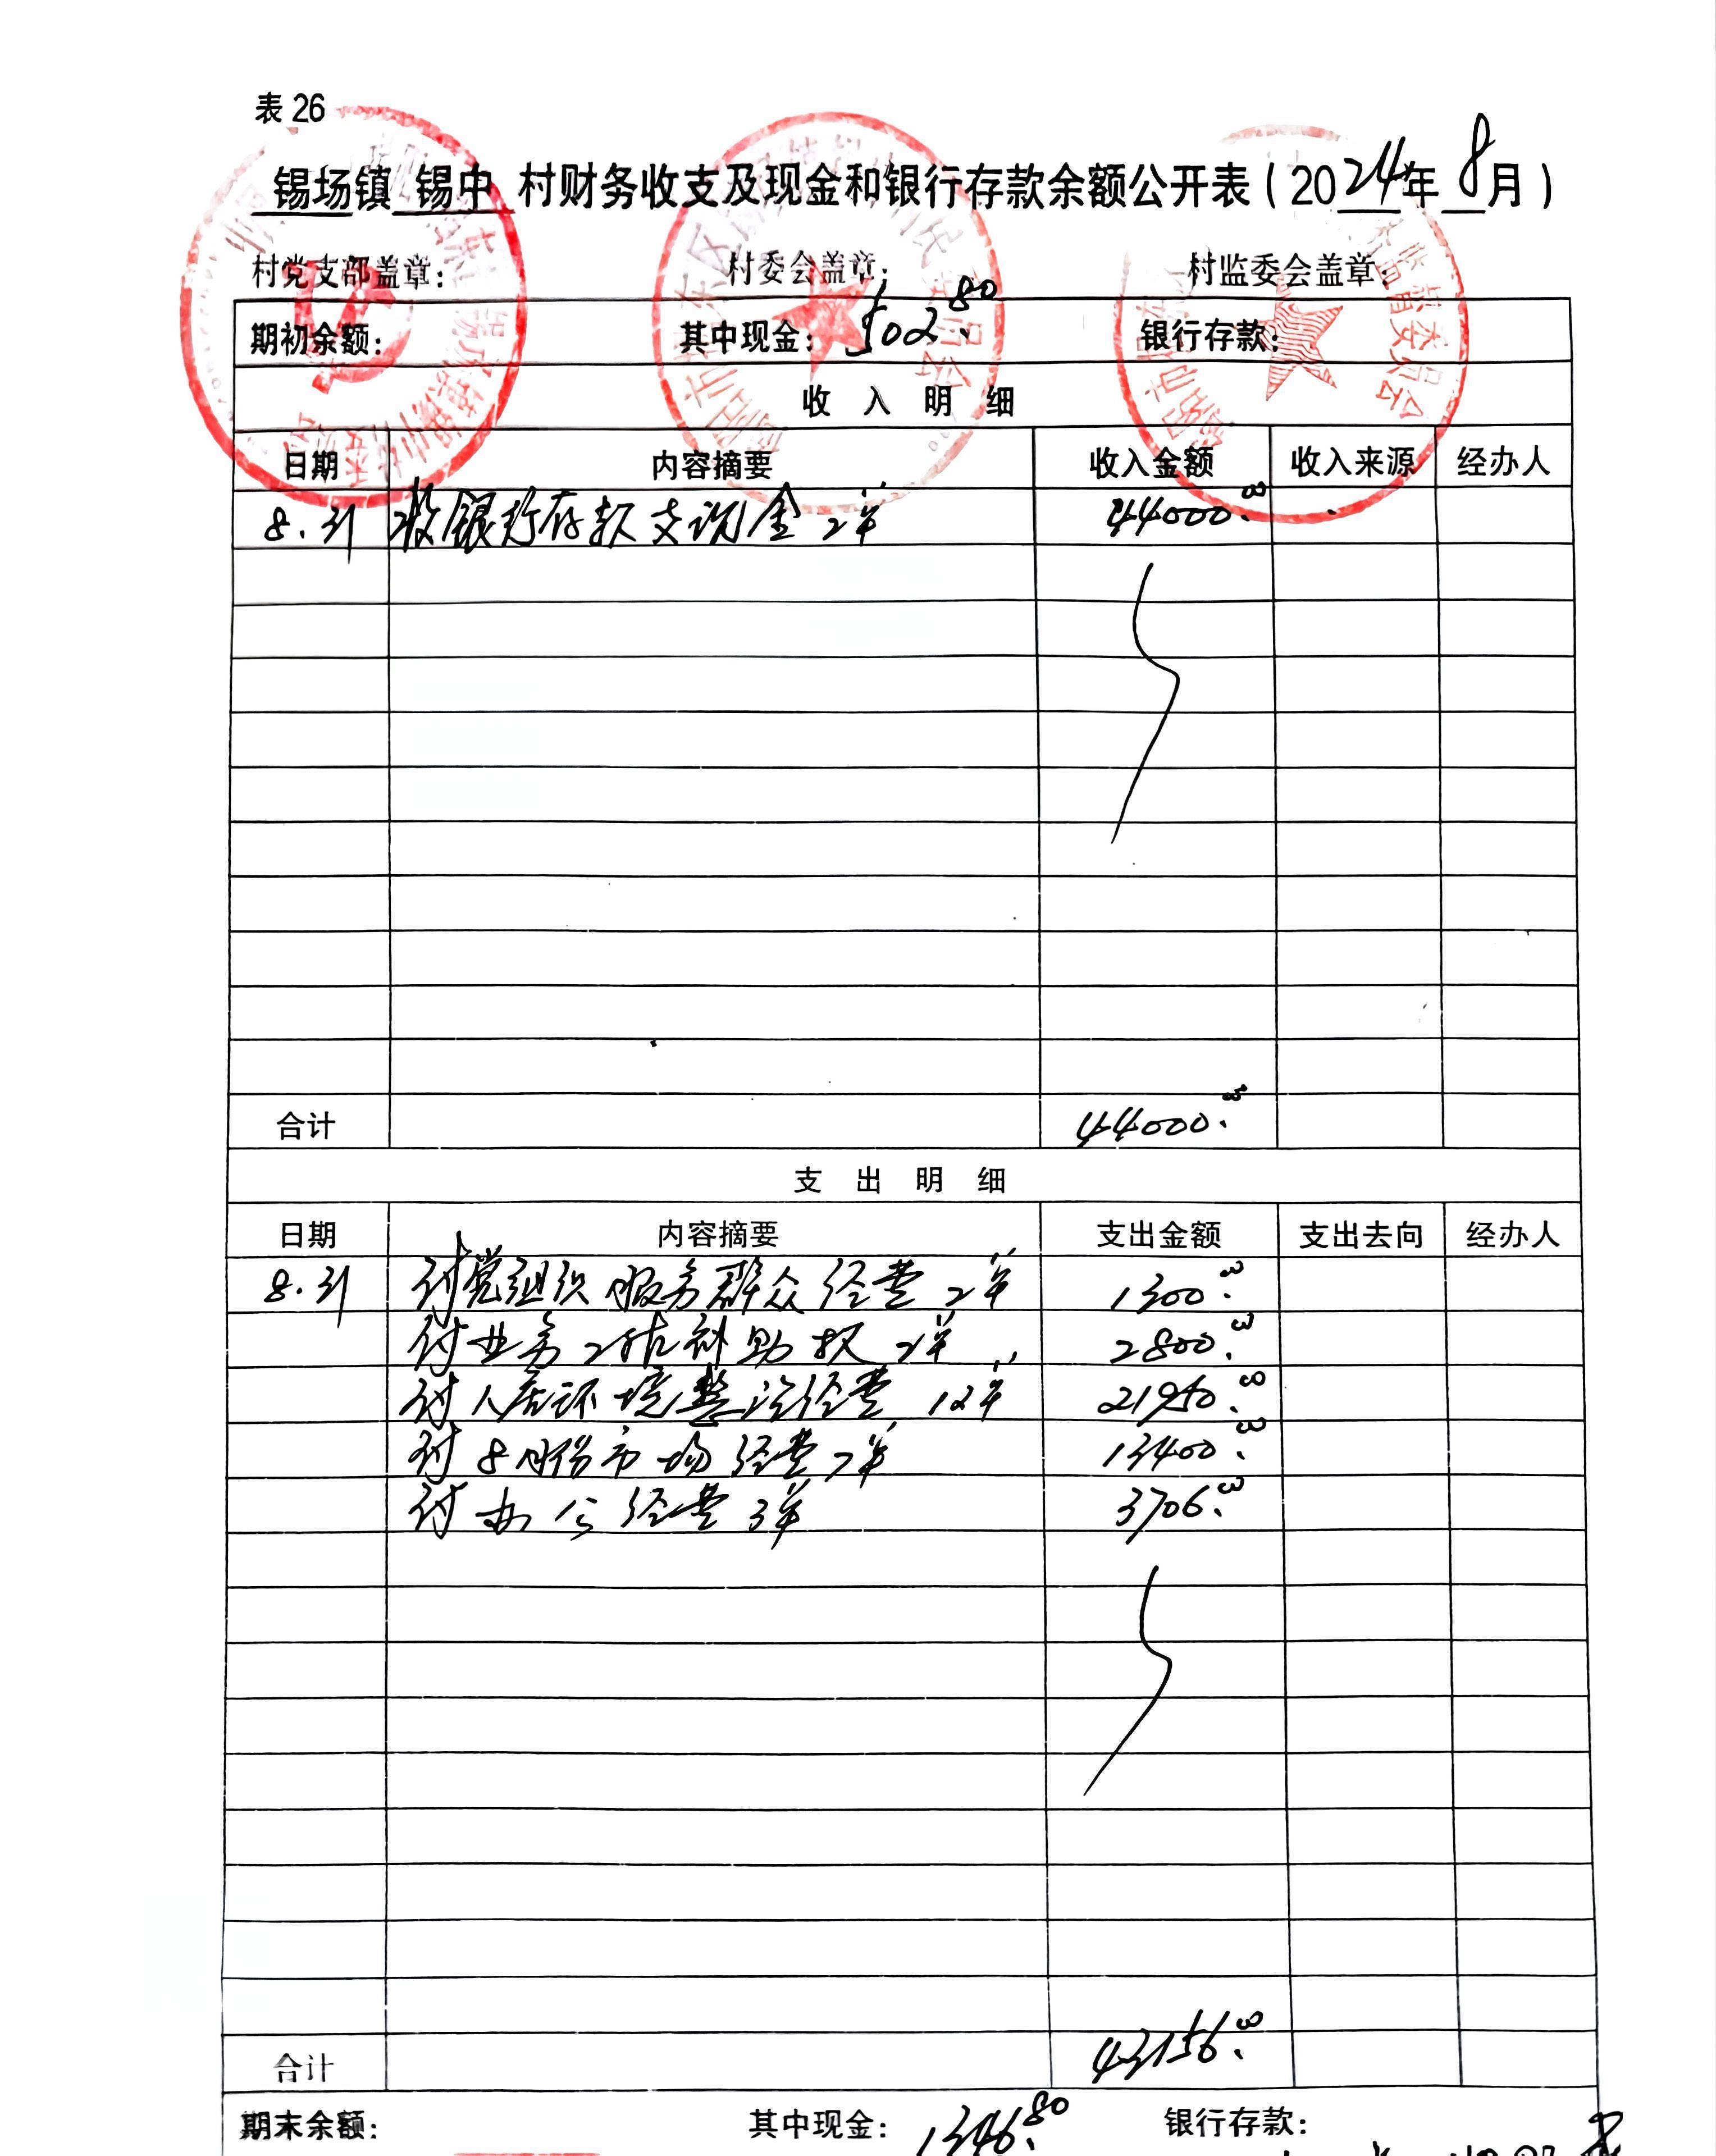 表 26
锡场镇 锡中 村财务收支及现金和银行存款余额公开表（2024年 8月）
村党支部盖章： 村委会盖章： 村监委会盖章：
期初余额： 其中现金：502.80 银行存款：
收 入 明 细
日期 内容摘要 收入金额 收入来源 经办人
8.31 收银行存款支现金2单 44000.00
合计 44000.00
支 出 明 细
日期 内容摘要 支出金额 支出去向 经办人
8.31 付党组织服务群众经费2单 1300.00
付业务工作补助款2单 2800.00
付人居环境整治经费12单 21950.00
付8月份市场经费7单 13400.00
付办公经费3单 3706.00
合计 43156.00
期末余额： 其中现金：1346.80 银行存款：